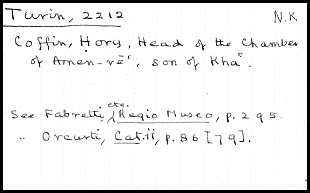 Turin, 2212 N.K
Coffin, Hory, Head of the Chamber
of Amen-rēʿ, son of Khaʿ.
See Fabretti, etc. Regio Museo, p. 295.
" Orcurti, Cat. ii, p. 86 [79].